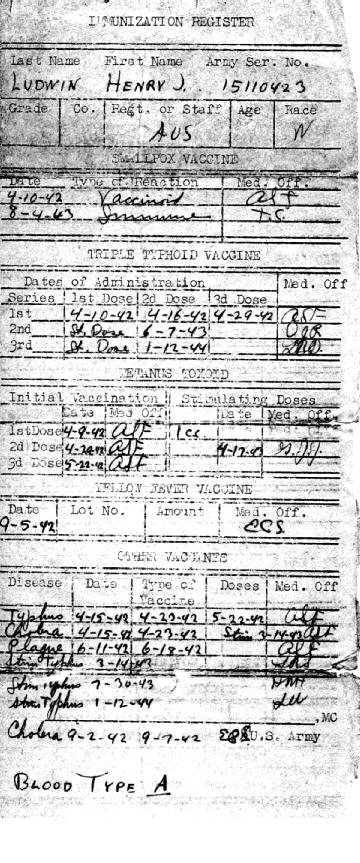 IMMUNIZATION REGISTER
Last Name First Name Army Ser. No.
LUDWIN HENRY J. 15110423
Grade Co. Regt. or Staff Age Race
AUS W
SMALLPOX VACCINE
Date Type of Reaction Med. Off.
4-10-42 Vaccinoid ALF
8-4-43 Immune
TRIPLE TYPHOID VACCINE
Dates of Administration Med. Off
Series 1st Dose 2d Dose 3d Dose
1st 4-10-42 4-16-42 4-29-42 ALF
2nd St. Dose 6-7-43
3rd St. Dose 1-12-44
TETANUS TOXOID
Initial Vaccination Stimulating Doses
Date Med Off Date Med. Off.
1st Dose 4-9-42 ALF 1cc
2d Dose ALF
3d Dose 5-22-42 ALF
YELLOW FEVER VACCINE
Date Lot No. Amount Med. Off.
9-5-42 ECS
OTHER VACCINES
Disease Date Type of Doses Med. Off
Vaccine
Typhus 4-15-42 4-23-42 5-22-42 ALF
Cholera 4-15-42 4-23-42 Stim 3-14-43 ALF
Plague 6-11-42 6-18-42 ALF
Stim Typhus 3-14-43
Stim Typhus 7-30-43
Stim Typhus 1-12-44
,MC
Cholera 9-2-42 9-7-42 U.S. Army
BLOOD TYPE A